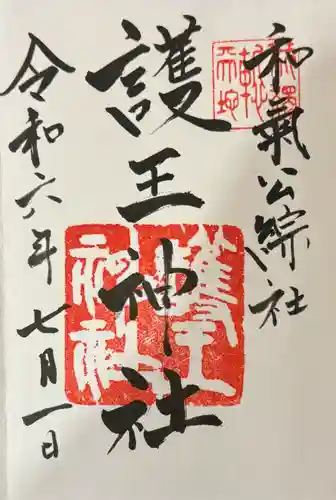 和氣公綜社
護王神社
令和六年七月一日
護王神社